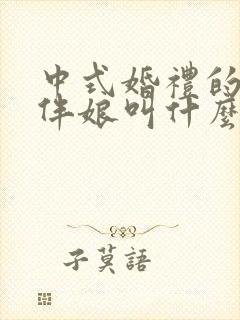 中式婚禮的
伴娘叫什麼
子莫語